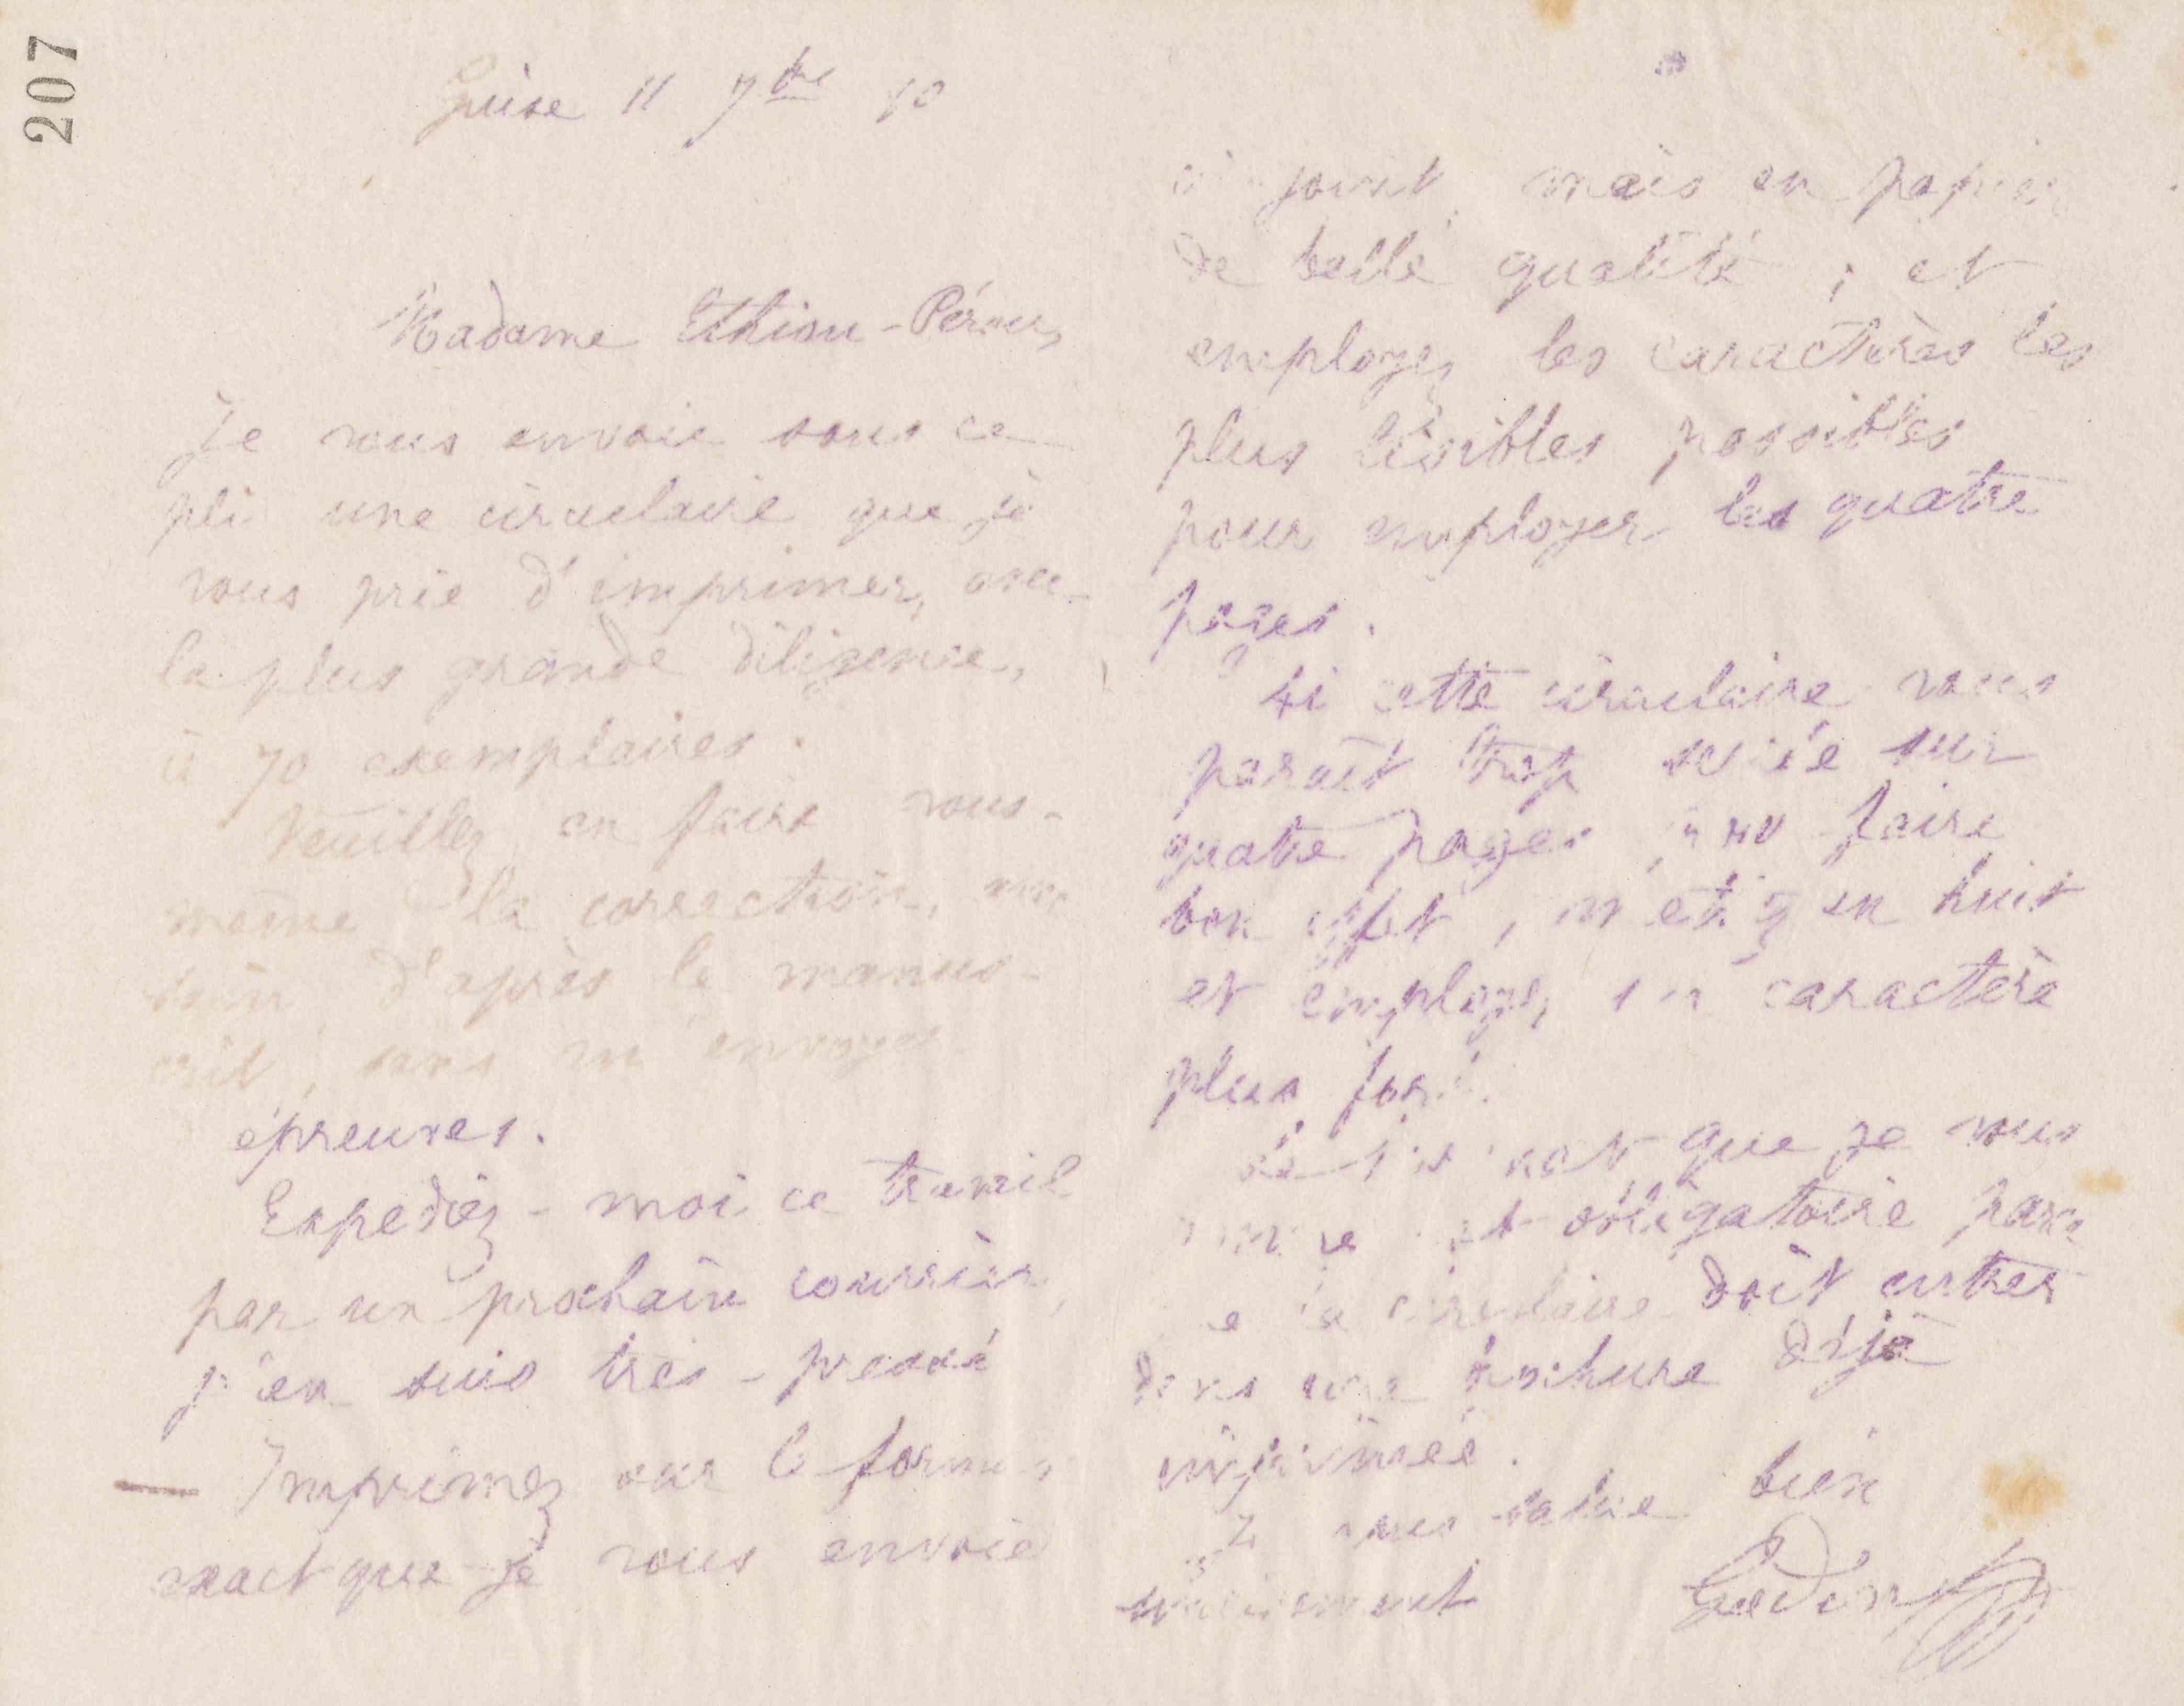 207
Guise 11 7bre 80
Madame Ethiou-Pérou,
Je vous envoie sous ce
pli une circulaire que je
vous prie d'imprimer, avec
la plus grande diligence,
à 70 exemplaires.
Veuillez en faire vous-
même la correction,
bien d'après le manus-
crit, sans m'envoyer
épreuves.
Expédiez-moi ce travail
par un prochain courrier,
j'en suis très-pressé
Imprimez sur le format
exact que je vous envoie
ci joint mais en papier
de belle qualité ; et
employez les caractères les
plus lisibles possibles
pour employer les quatre
pages.
Si cette circulaire vous
paraît trop serrée sur
quatre pages pour faire
bon effet, mettez en huit
et employez un caractère
plus fort.
Le format que je vous
donne est obligatoire parce
que la circulaire doit entrer
dans une brochure déjà
imprimée.
Je vous salue bien
sincèrement Godin